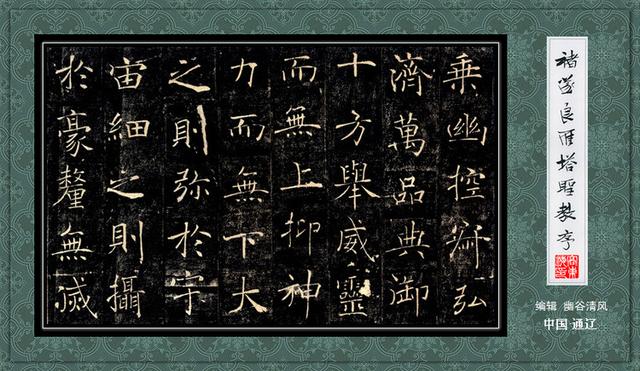 乘幽控寂弘
濟萬品典御
十方舉威靈
而無上抑神
力而無下大
之則弥於宇
宙細之則攝
於豪釐無滅
褚遂良雁塔聖教序
编辑 幽谷清风
中国·通辽